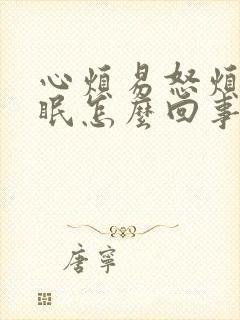 心煩易怒煩
眠怎麼回事
唐寧